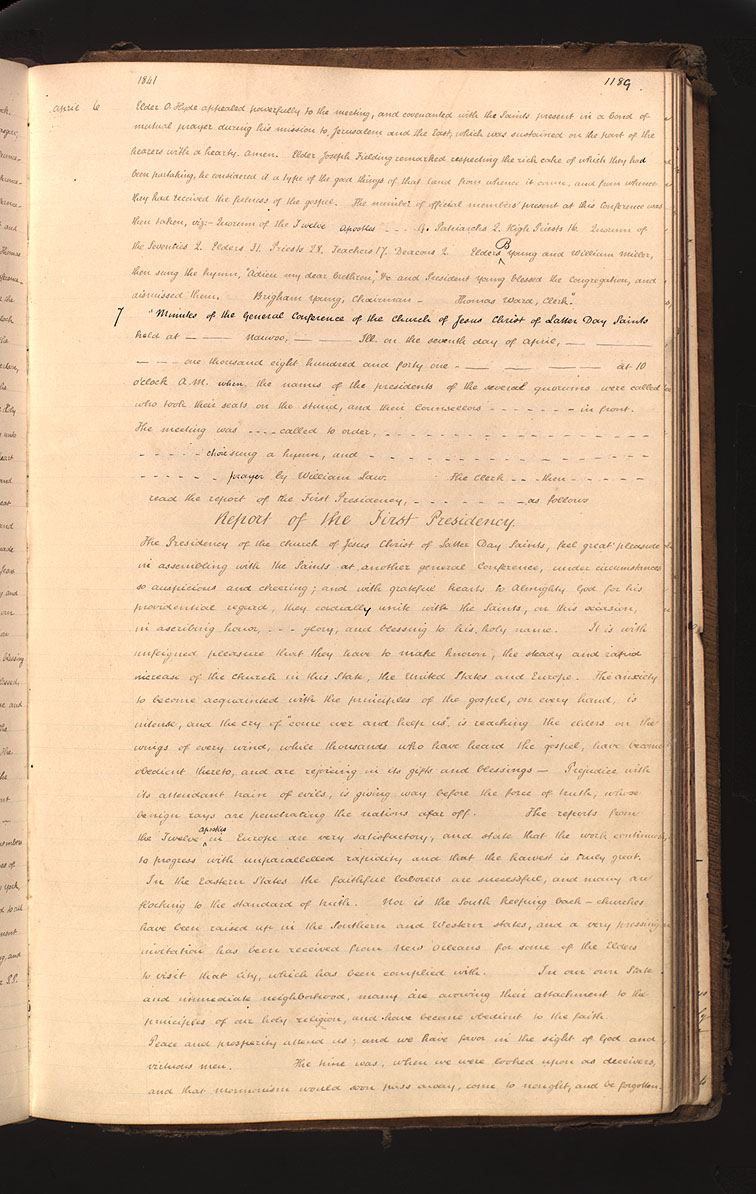 1841 1189
april 6 Elder O. Hyde appealed powerfully to the meeting, and covenanted with the Saints present in a bond of
mutual prayer during his mission to Jerusalem and the East, which was sustained on the part of the
hearers with a hearty amen. Elder Joseph Fielding remarked respecting the rich cake of which they had
been partaking, he considered it a type of the good things of that land from whence it came, and from whence
they had received the fulness of the gospel. The number of official members present at this Conference was
then taken, viz:- Quorum of the Twelve Apostles - - - 9. Patriarchs 2. High Priests 16. Quorum of
the Seventies 2. Elders 31. Priests 28. Teachers 17. Deacons 2. Elders B Young and William Miller,
then sung the hymn, "Adieu my dear brethren," &c and President Young blessed the congregation, and
dismissed them. Brigham Young, Chairman – Thomas Ward, Clerk".
7 "Minutes of the General Conference of the Church of Jesus Christ of Latter Day Saints
held at — — Nauvoo, — — Ill. on the seventh day of april, — —
— – – one thousand eight hundred and forty one - — — — at 10
o'clock A.M. when the names of the presidents of the several quorums were called
who took their seats on the stand, and their Counsellors - - - - - - - in front.
The meeting was - - - - called to order, - - - - - - - - - - - -
- - - - - choir sung a hymn, and - - - - - - - - - - - -
- - - - - - prayer by William Law. The Clerk - - - then - - - - -
read the report of the First Presidency, - - - - - - - as follows
Report of the First Presidency.
The Presidency of the church of Jesus Christ of Latter Day Saints, feel great pleasure
in assembling with the Saints at another general Conference, under circumstances
so auspicious and cheering; and with grateful hearts to Almighty God for his
providential regard, they cordially unite with the Saints, on this occasion,
in ascribing honor, - - - glory, and blessing to his holy name. It is with
unfeigned pleasure that they have to make known, the steady and rapid
increase of the church in this State, the United States and Europe. The anxiety
to become acquainted with the principles of the gospel, on every hand, is
intense, and the cry of "come over and help us", is reaching the elders on the
wings of every wind, while thousands who have heard the gospel, have become
obedient thereto, and are rejoicing in its gifts and blessings — Prejudice with
its attendant train of evils, is giving way before the force of truth, whose
benign rays are penetrating the nations afar off. The reports from
the Twelve apostles in Europe are very satisfactory, and state that the work continues
to progress with unparallelled rapidity and that the harvest is truly great.
In the Eastern States the faithful laborers are successful, and many are
flocking to the standard of truth. Nor is the South keeping back – churches
have been raised up in the Southern and Western states, and a very pressing
invitation has been received from New Orleans for some of the Elders
to visit that city, which has been complied with. In our own State
and immediate neighborhood, many are avowing their attachment to the
principles of our holy religion, and have become obedient to the faith
Peace and prosperity attend us; and we have favor in the sight of God and
virtuous men. The time was, when we were looked upon as deceivers,
and that mormonism would soon pass away, come to nought, and be forgotten.